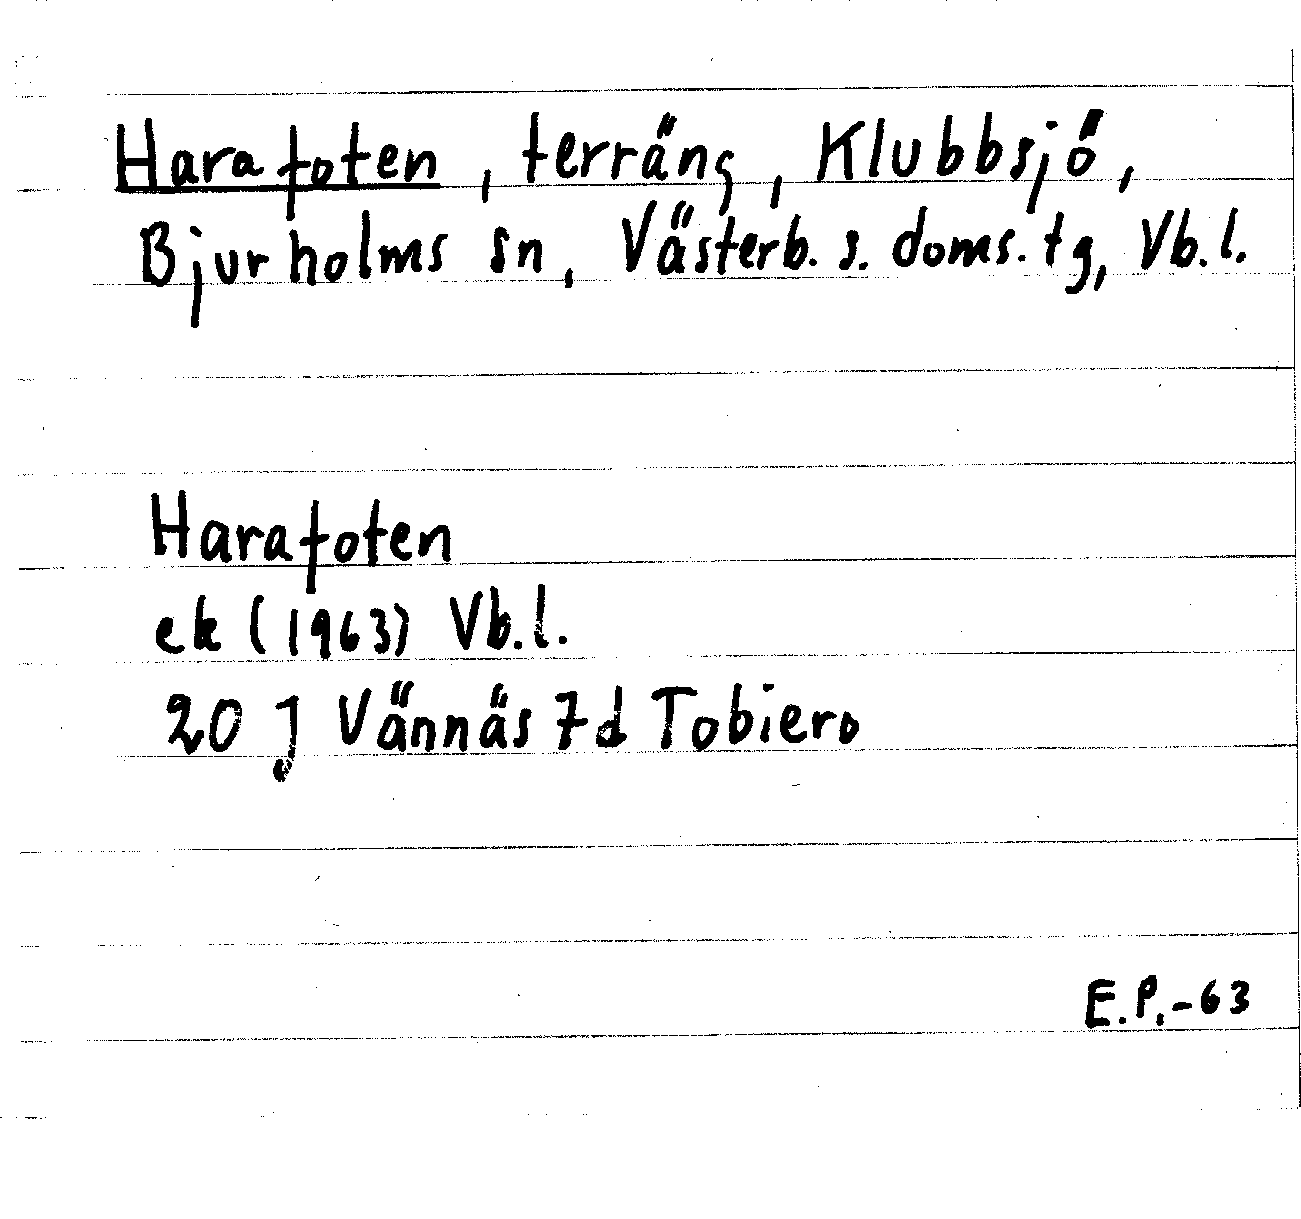 Harafoten, terräng, Klubbsjö,
Bjurholms sn, Västerb. s. doms. tg, Vb. l.
Harafoten
ek (1963) Vb. l.
20 J Vännäs 7d Tobiero
E.P.-63